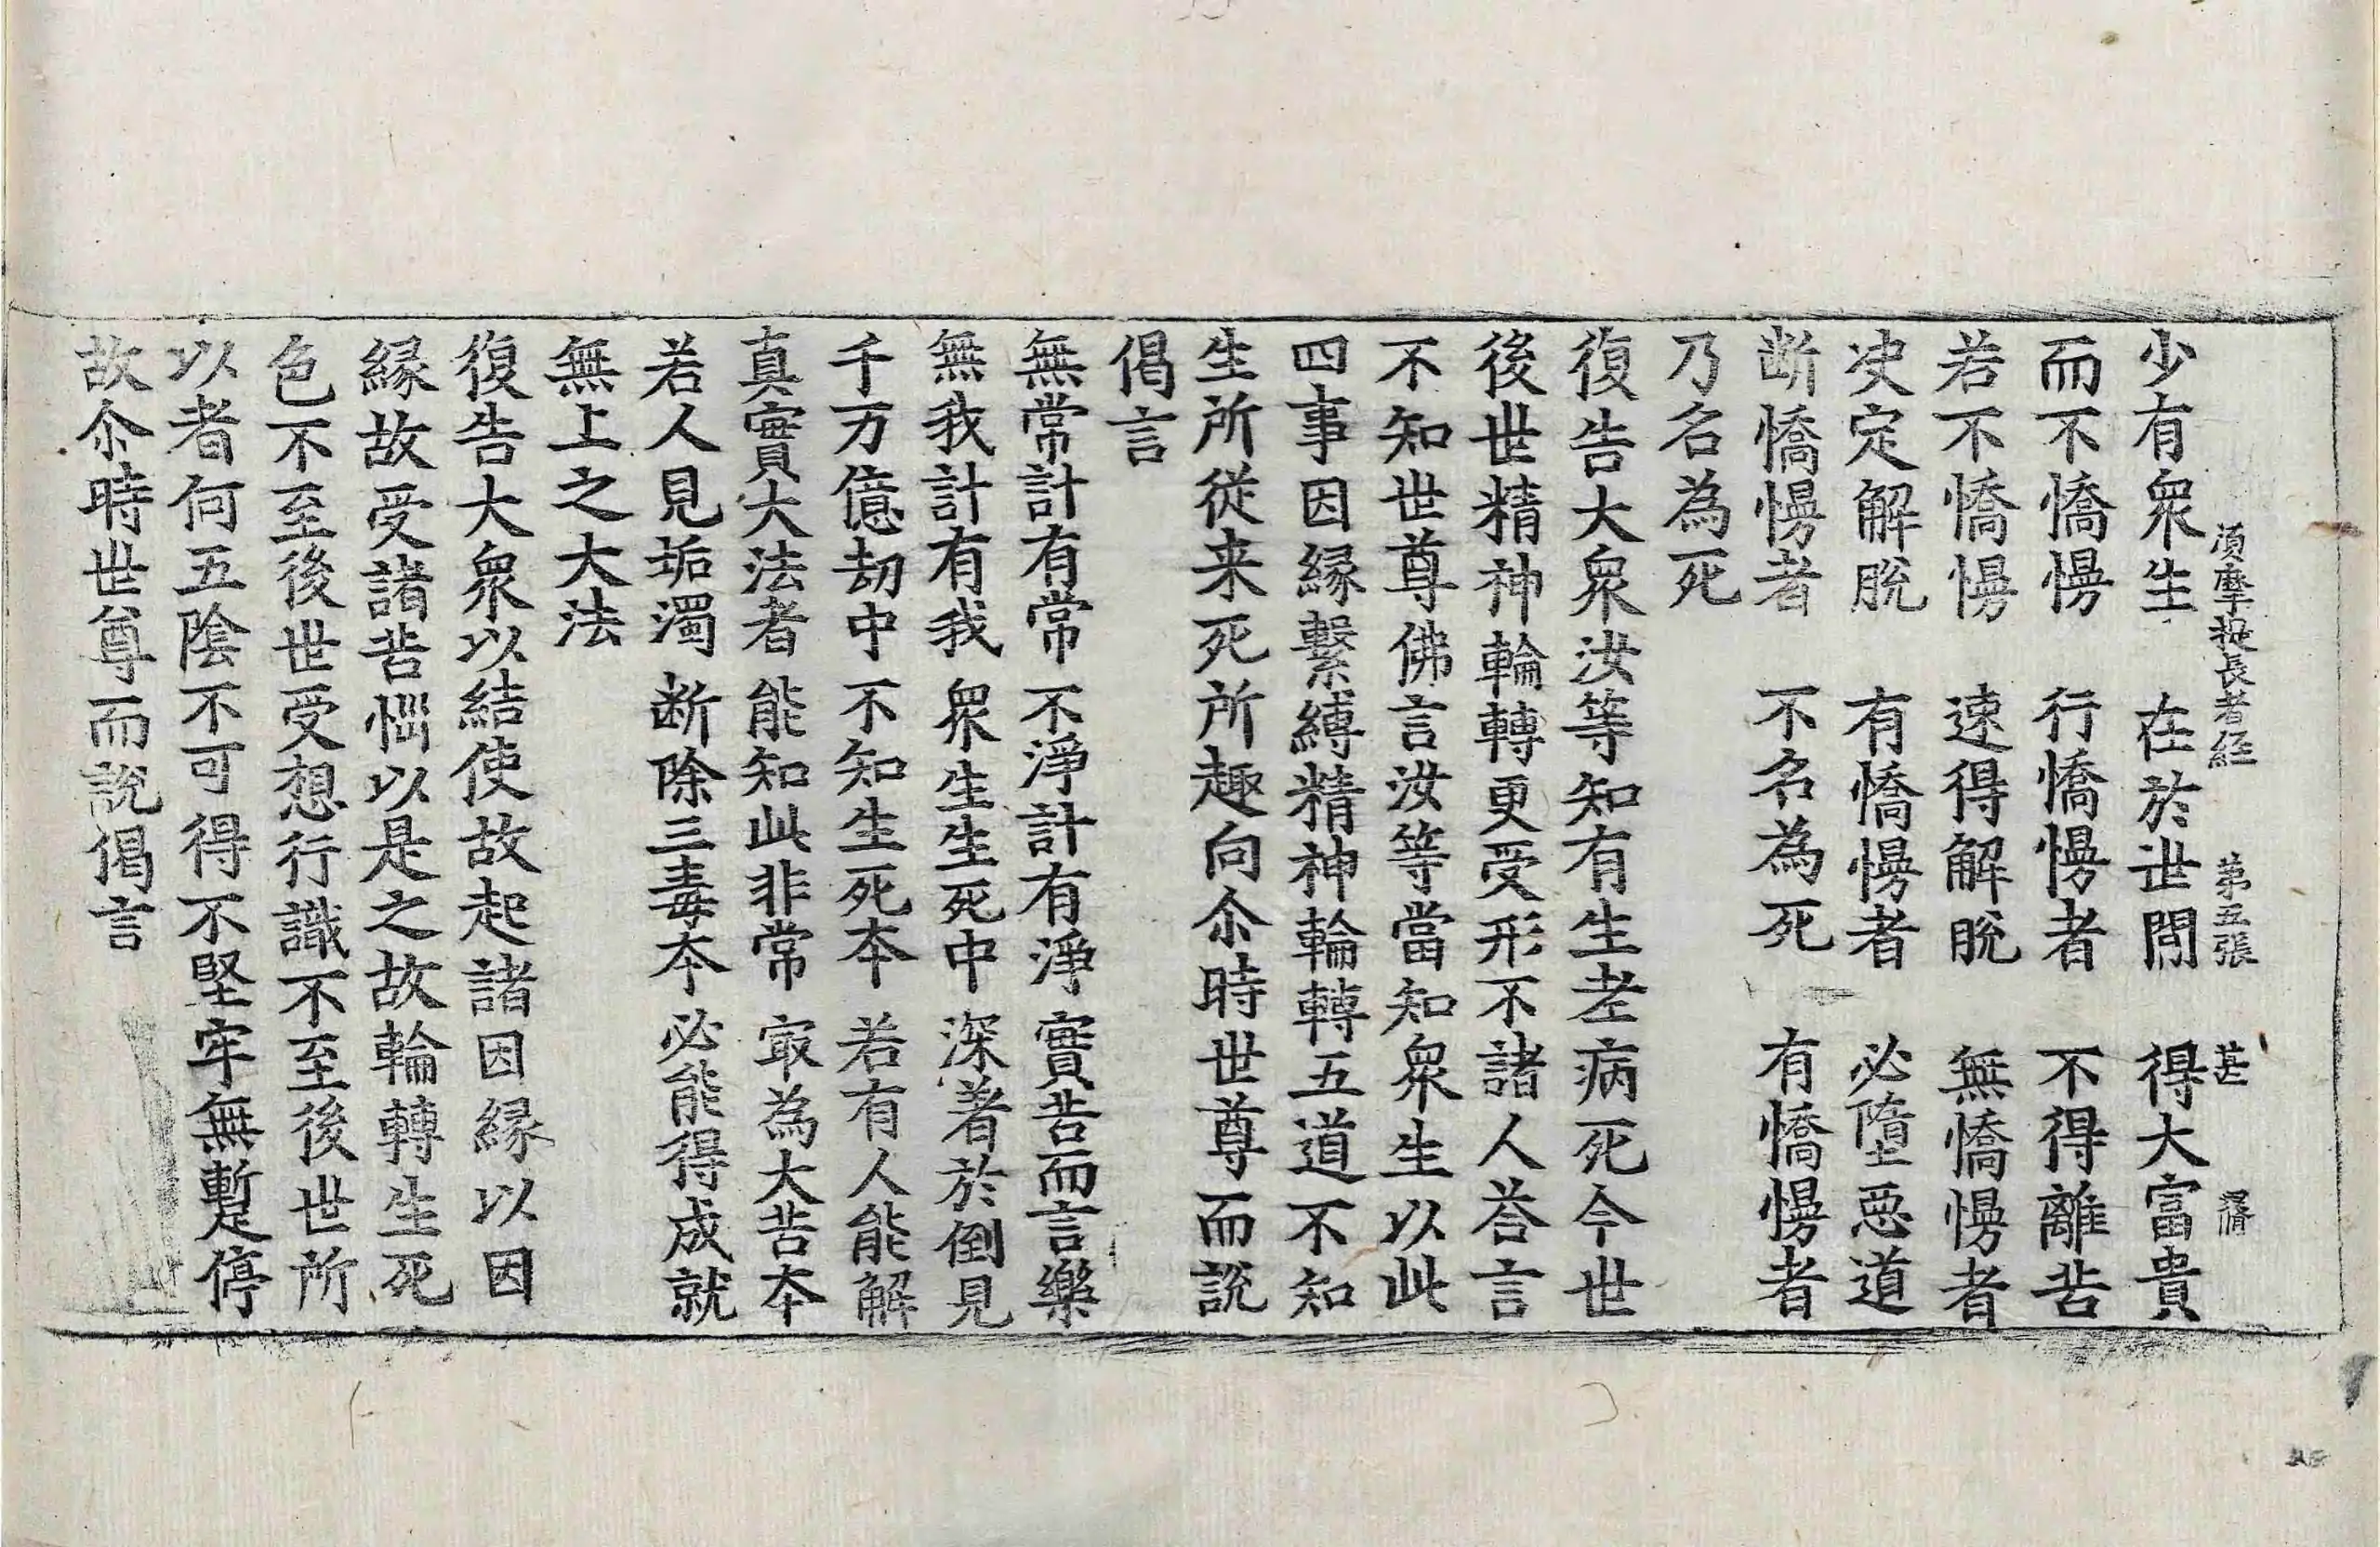 須摩提長者經 第五張 甚
少有眾生 在於世間 得大富貴
而不憍慢 行憍慢者 不得離苦
若不憍慢 速得解脫 無憍慢者
决定解脫 有憍慢者 必墮惡道
断憍慢者 不名為死 有憍慢者
乃名為死
復告大眾汝等知有生老病死今世
後世精神輪轉更受形不諸人荅言
不知世尊佛言汝等當知眾生以此
四事因縁繫縛精神輪轉五道不知
生所從来死所趣向尒時世尊而說
偈言
無常計有常 不淨計有淨 實苦而言樂
無我計有我 眾生生死中 深著於倒見
千万億劫中 不知生死本 若有人能解
真實大法者 能知此非常 㝡為大苦本
若人見垢濁 断除三毒本 必能得成就
無上之大法
復告大眾以結使故起諸因縁以因
縁故受諸苦惱以是之故輪轉生死
色不至後世受想行識不至後世所
以者何五陰不可得不堅牢無暫停
故尒時世尊而說偈言